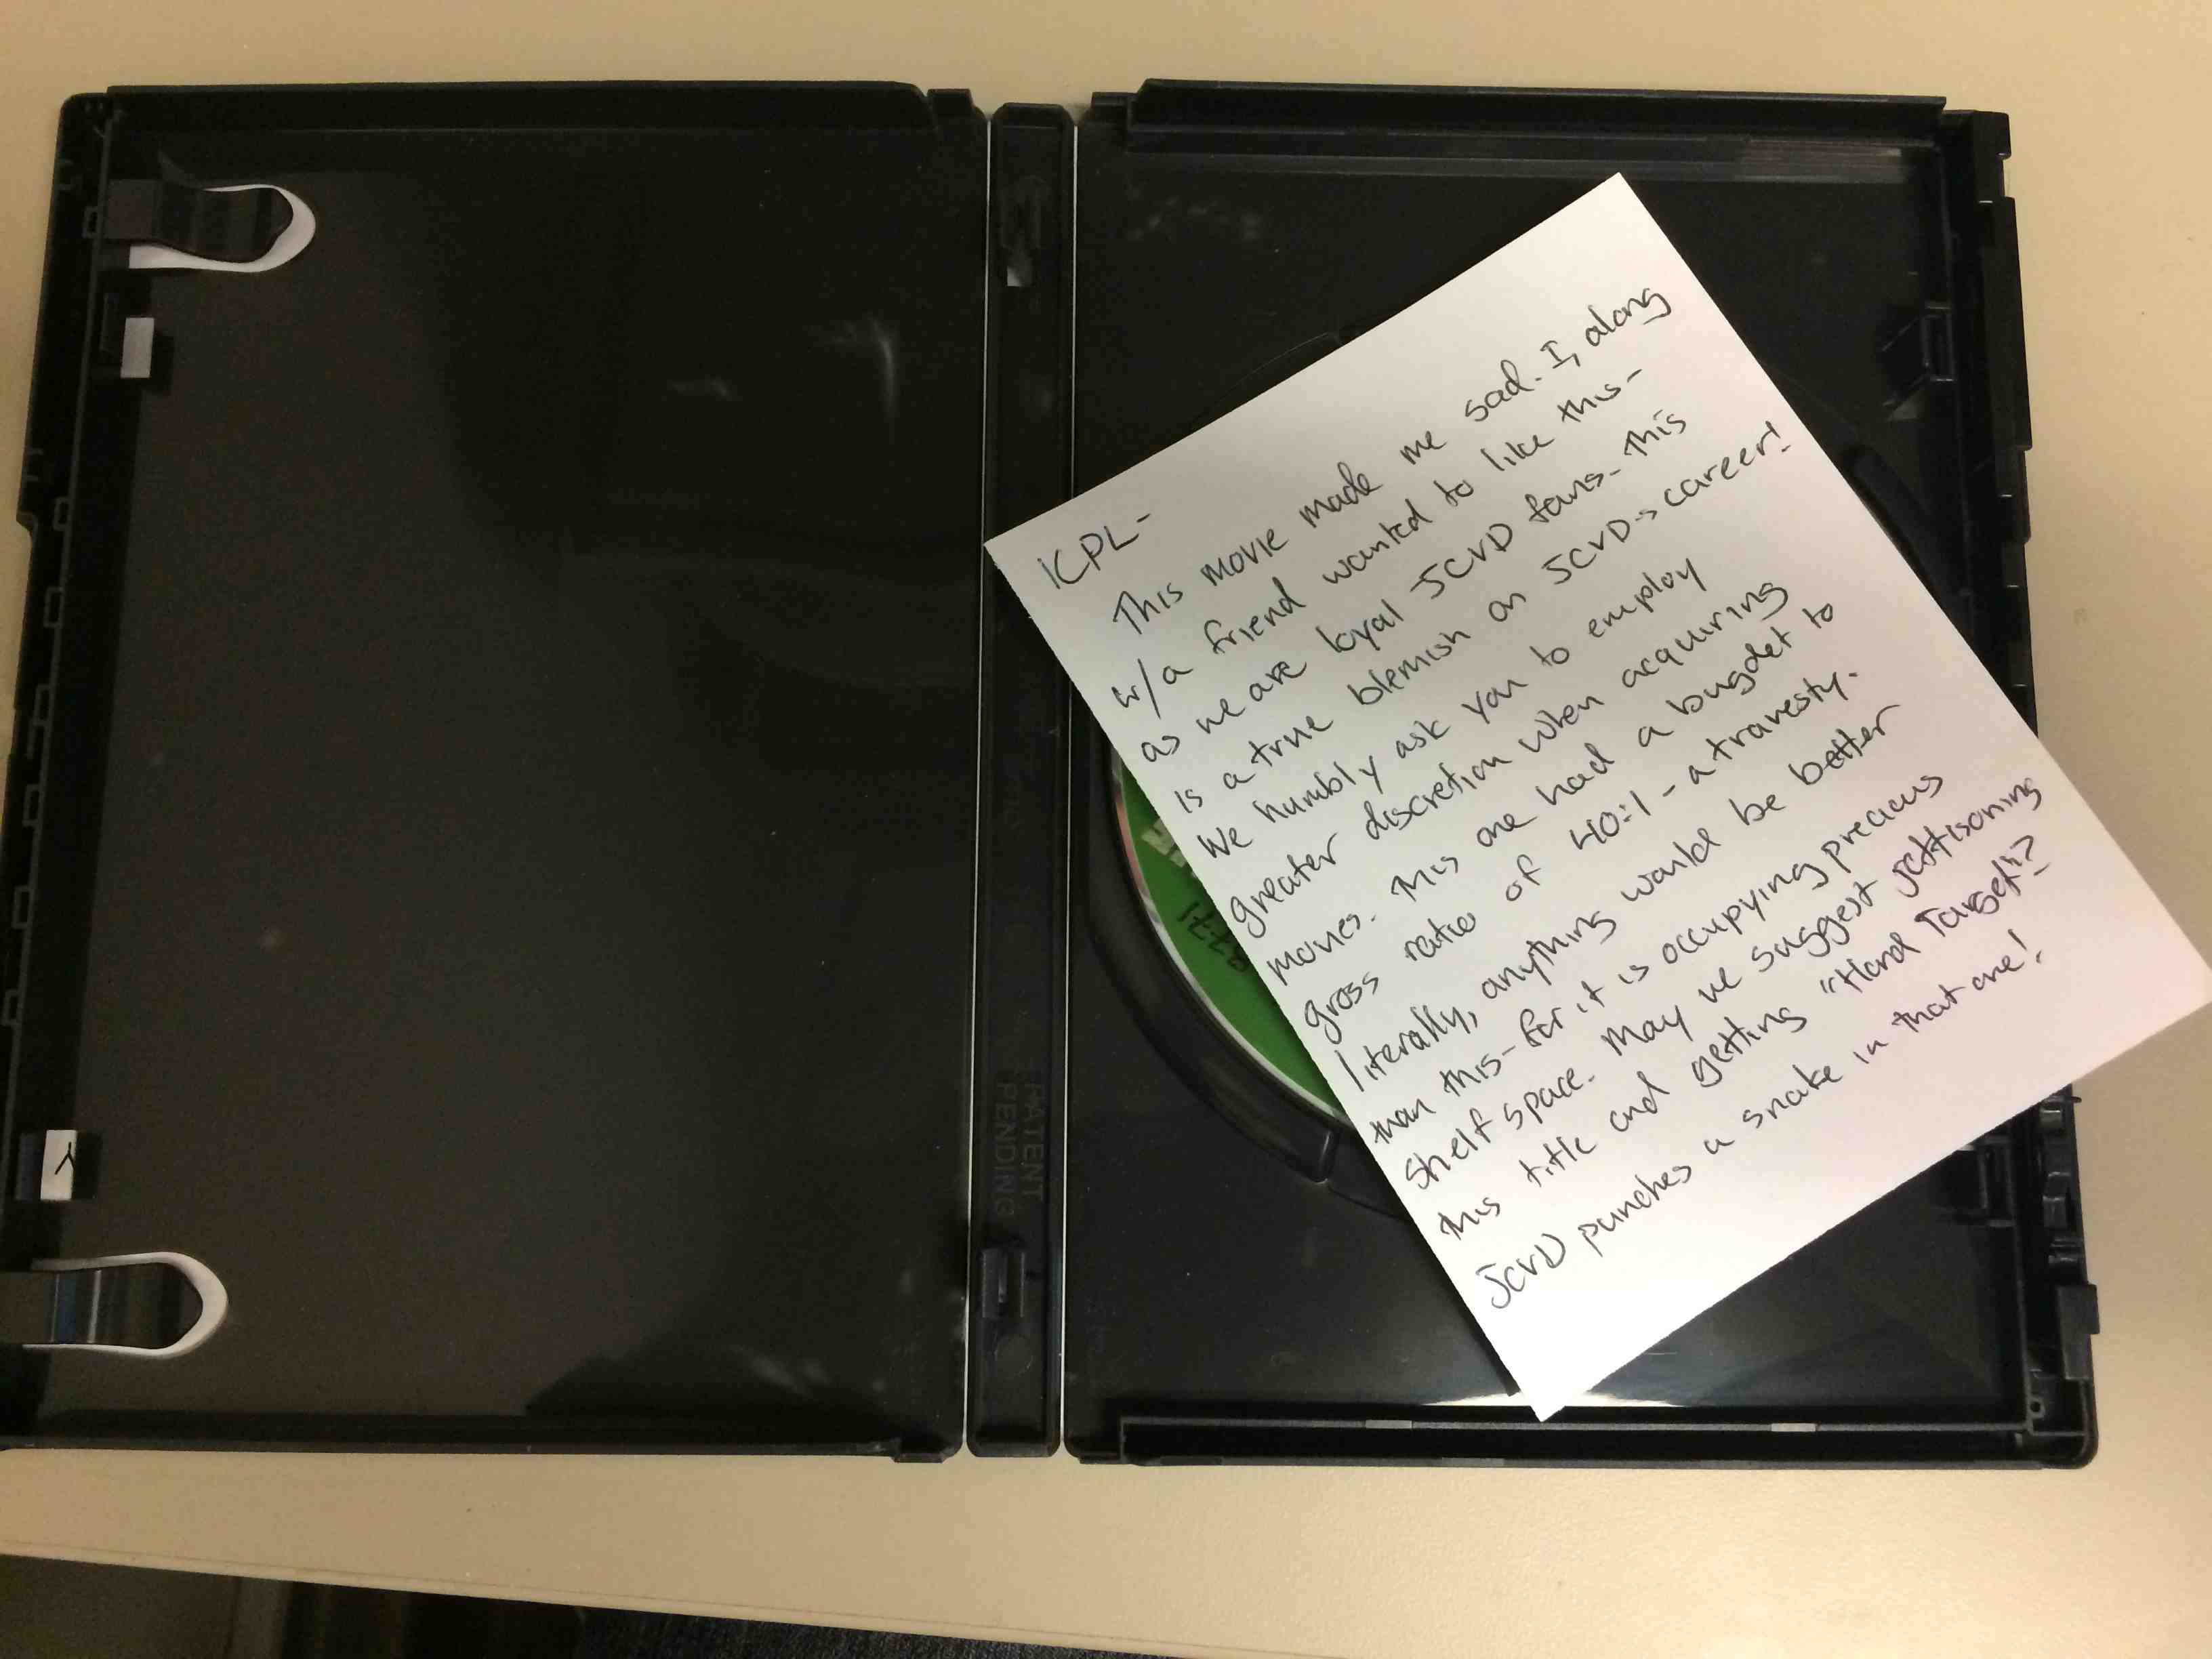 KPL-
This movie made me sad. I, along
w/a friend wanted to like this-
as we are loyal JCVD fans- This
is a true blemish on JCVD's career!
We humbly ask you to employ
greater discretion when acquiring
movies. This one had a bugdet to
gross ratio of 40:1 - a travesty.
literally, anything would be better
than this- for it is occupying precious
shelf space. May we suggest jettisoning
this title and getting "Hard Target"?
JCVD punches a snake in that one!
PATENT
PENDING